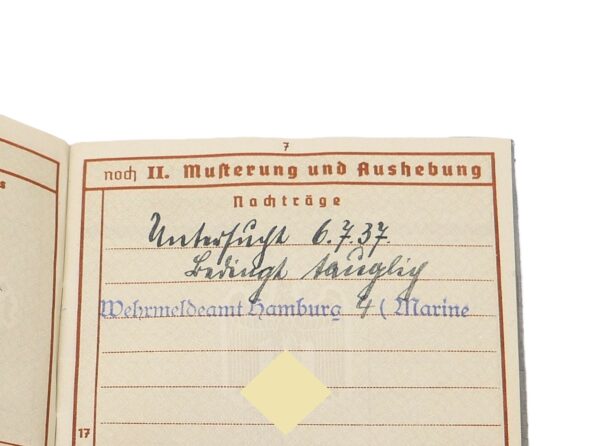 7
noch II. Musterung und Aushebung
Nachträge
Untersucht 6.7.37.
Bedingt tauglig
Wehrmeldeamt Hamburg 4 (Marine
17